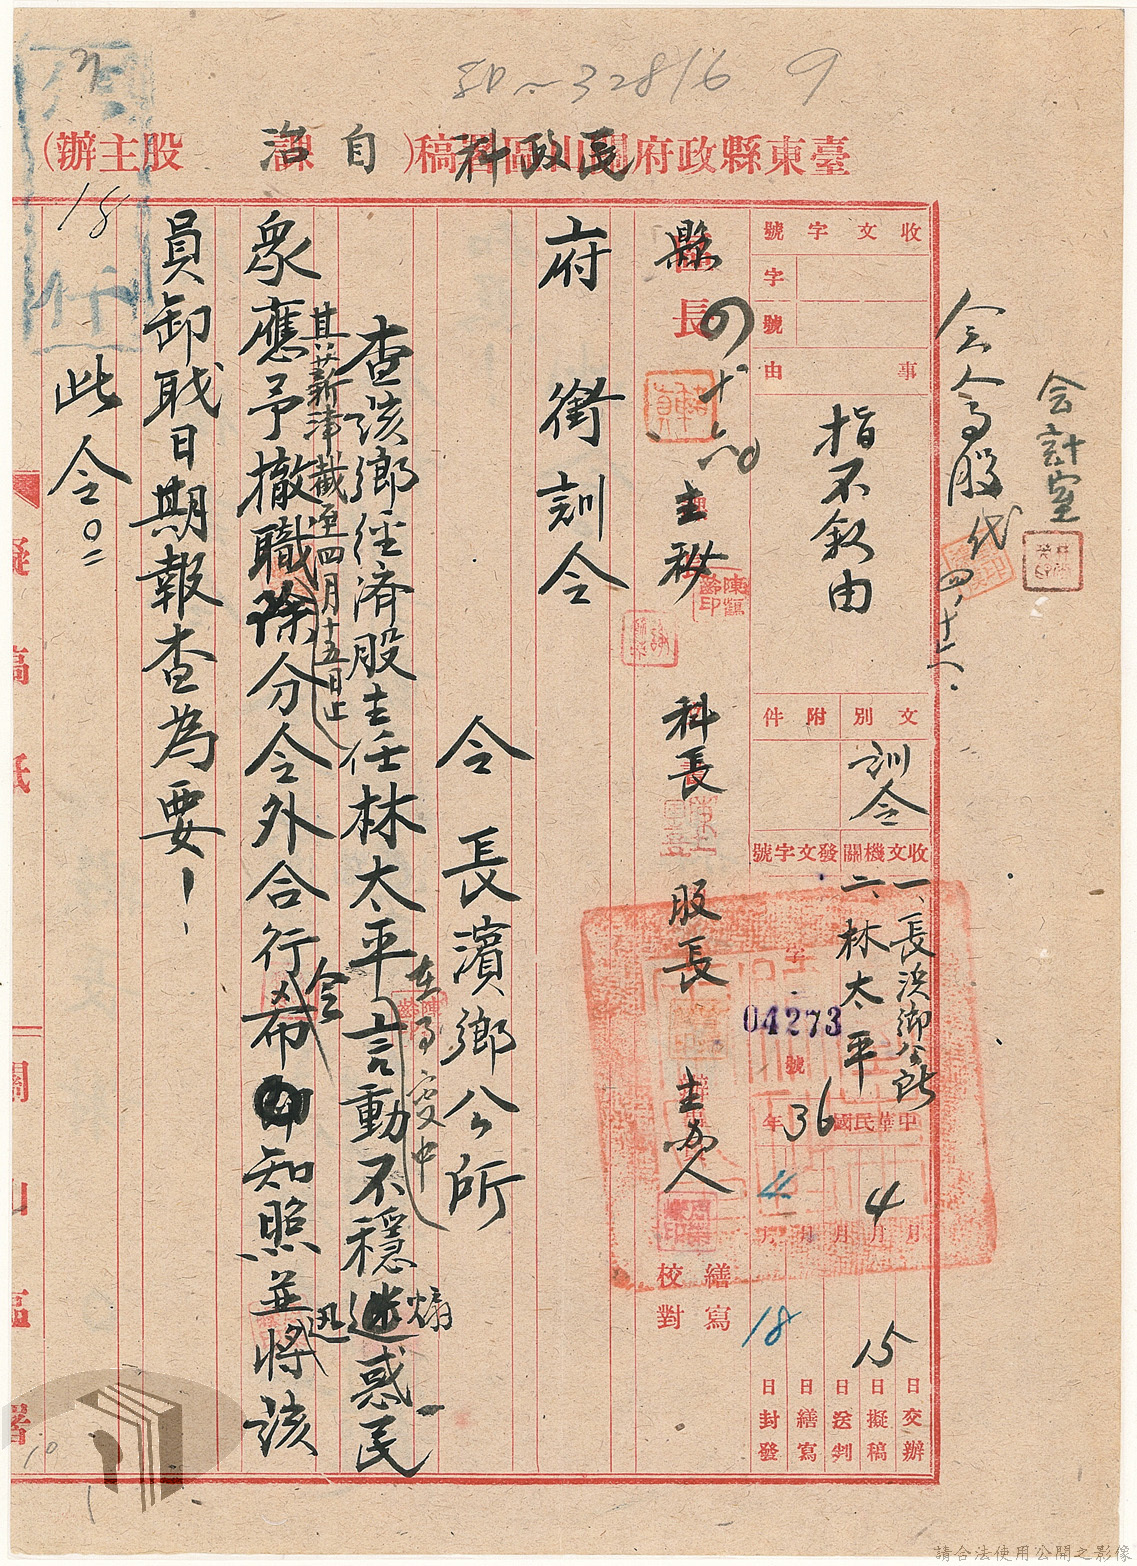 臺東縣政府關山區署稿
民政科
自治
課
(股主辦)
50~32816 9
収文字號
字
號
事由
指不敘由
文別
訓令
附件
収文機關
一、長浜鄉公所
二、林太平
發文字號
字
04273
號
中華民國36年
4月15日擬稿
月日交辦
月日送判
月日繕寫
4月18日封發
会計室
会令股代
四、十六、
縣長
四十六
主秘
科長
股長
主辦人
繕寫
校對
府銜訓令
令長濱鄉公所
查該鄉經濟股主任林太平言動不穩煽惑民
在事変中
眾應予撤職除分令外合行令希知照並迅將該
其薪津截至四月十五日止
員卸職日期報查為要!
此令。
18
擬稿紙
關山區署
10
請合法使用公開之影像